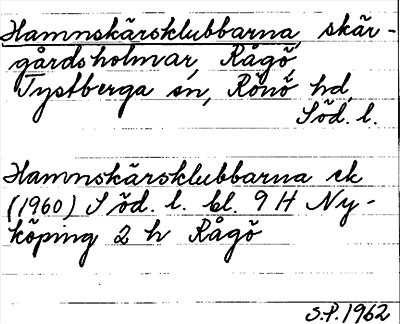 Hamnskärsklubbarna, skär-
gårdsholmar, Rågö,
Tystberga sn, Rönö hd,
Söd. l.
Hamnskärsklubbarna ek
(1960) Söd. l. bl. 9 H Ny-
köping 2 h Rågö
S.P. 1962